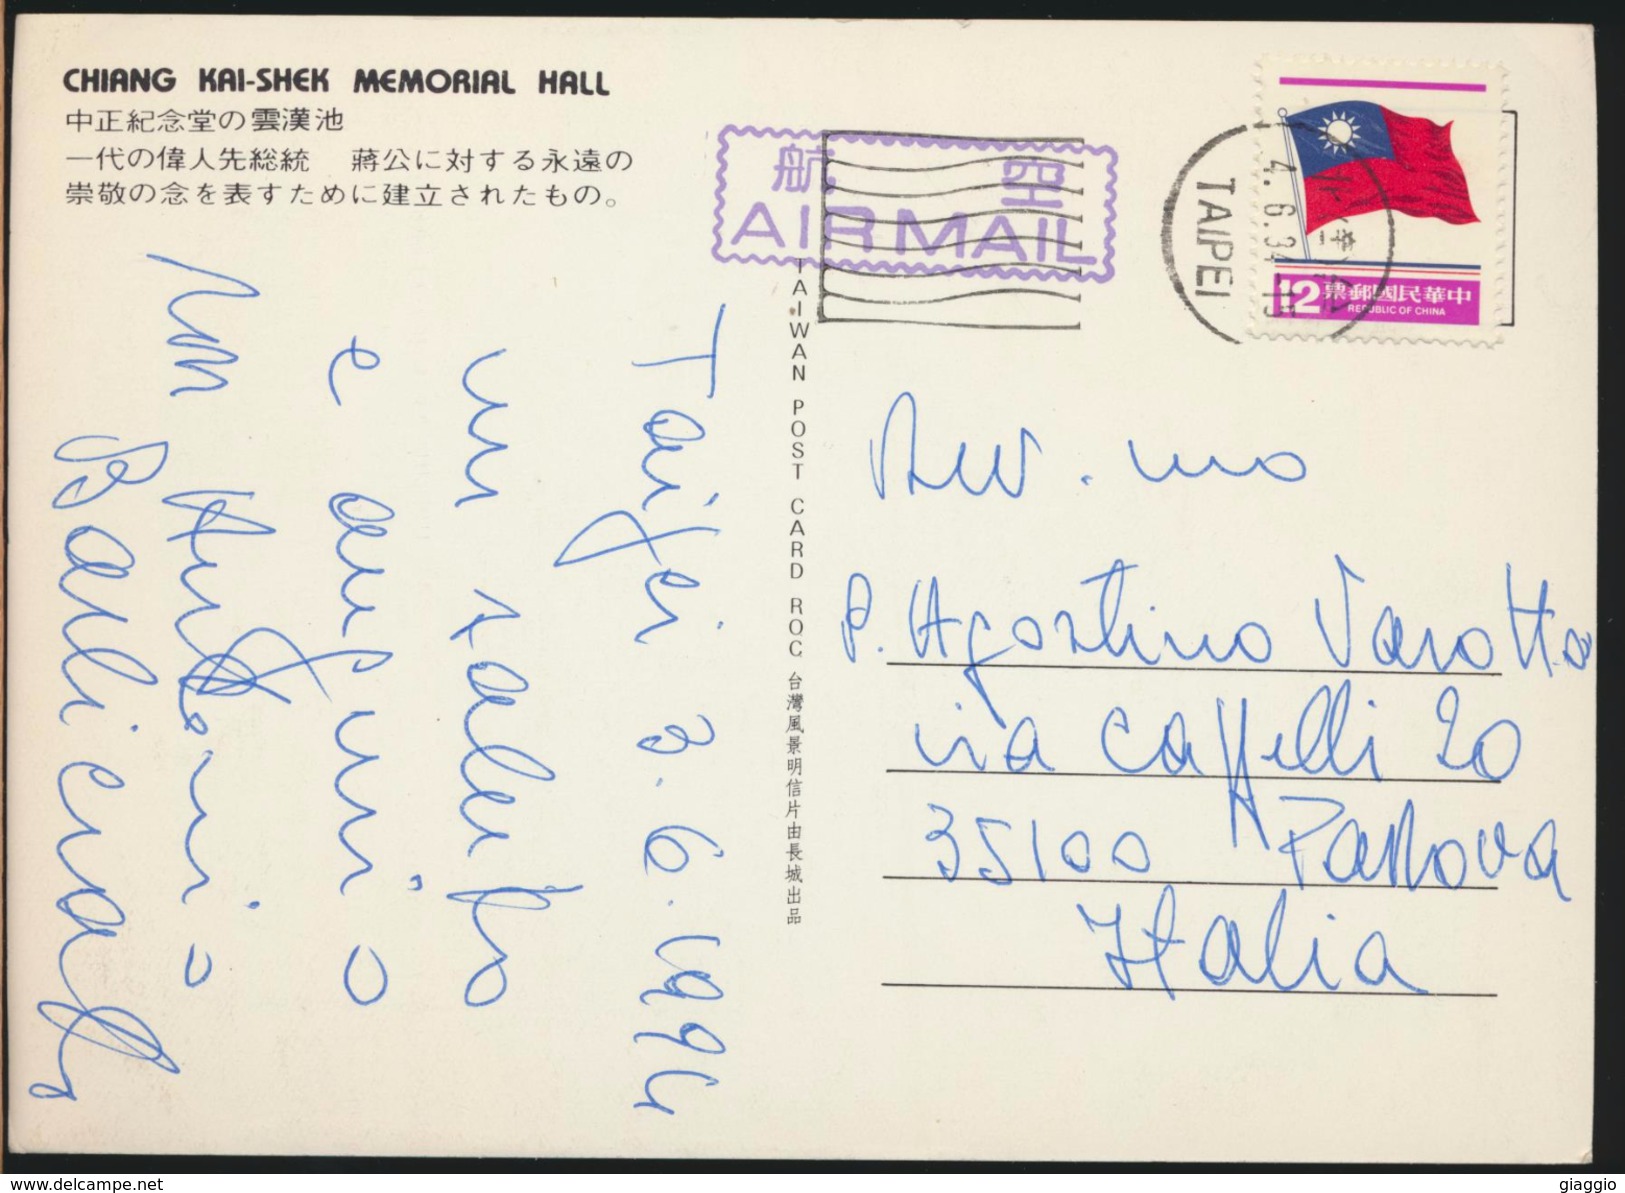 CHIANG KAI-SHEK MEMORIAL HALL
中正紀念堂の雲漢池
一代の偉人先総統 蔣公に対する永遠の
崇敬の念を表すために建立されたもの。
航空
AIRMAIL
TAIPEI
中華民國郵票
12
REPUBLIC OF CHINA
TAIWAN POST CARD ROC 台灣風景明信片由長城出品
Taipei 3.6.1994
un saluto
e augurio
P. Agostino Varotto
via Cappelli 20
35100 Padova
Italia
www.delcampe.net
giaggio